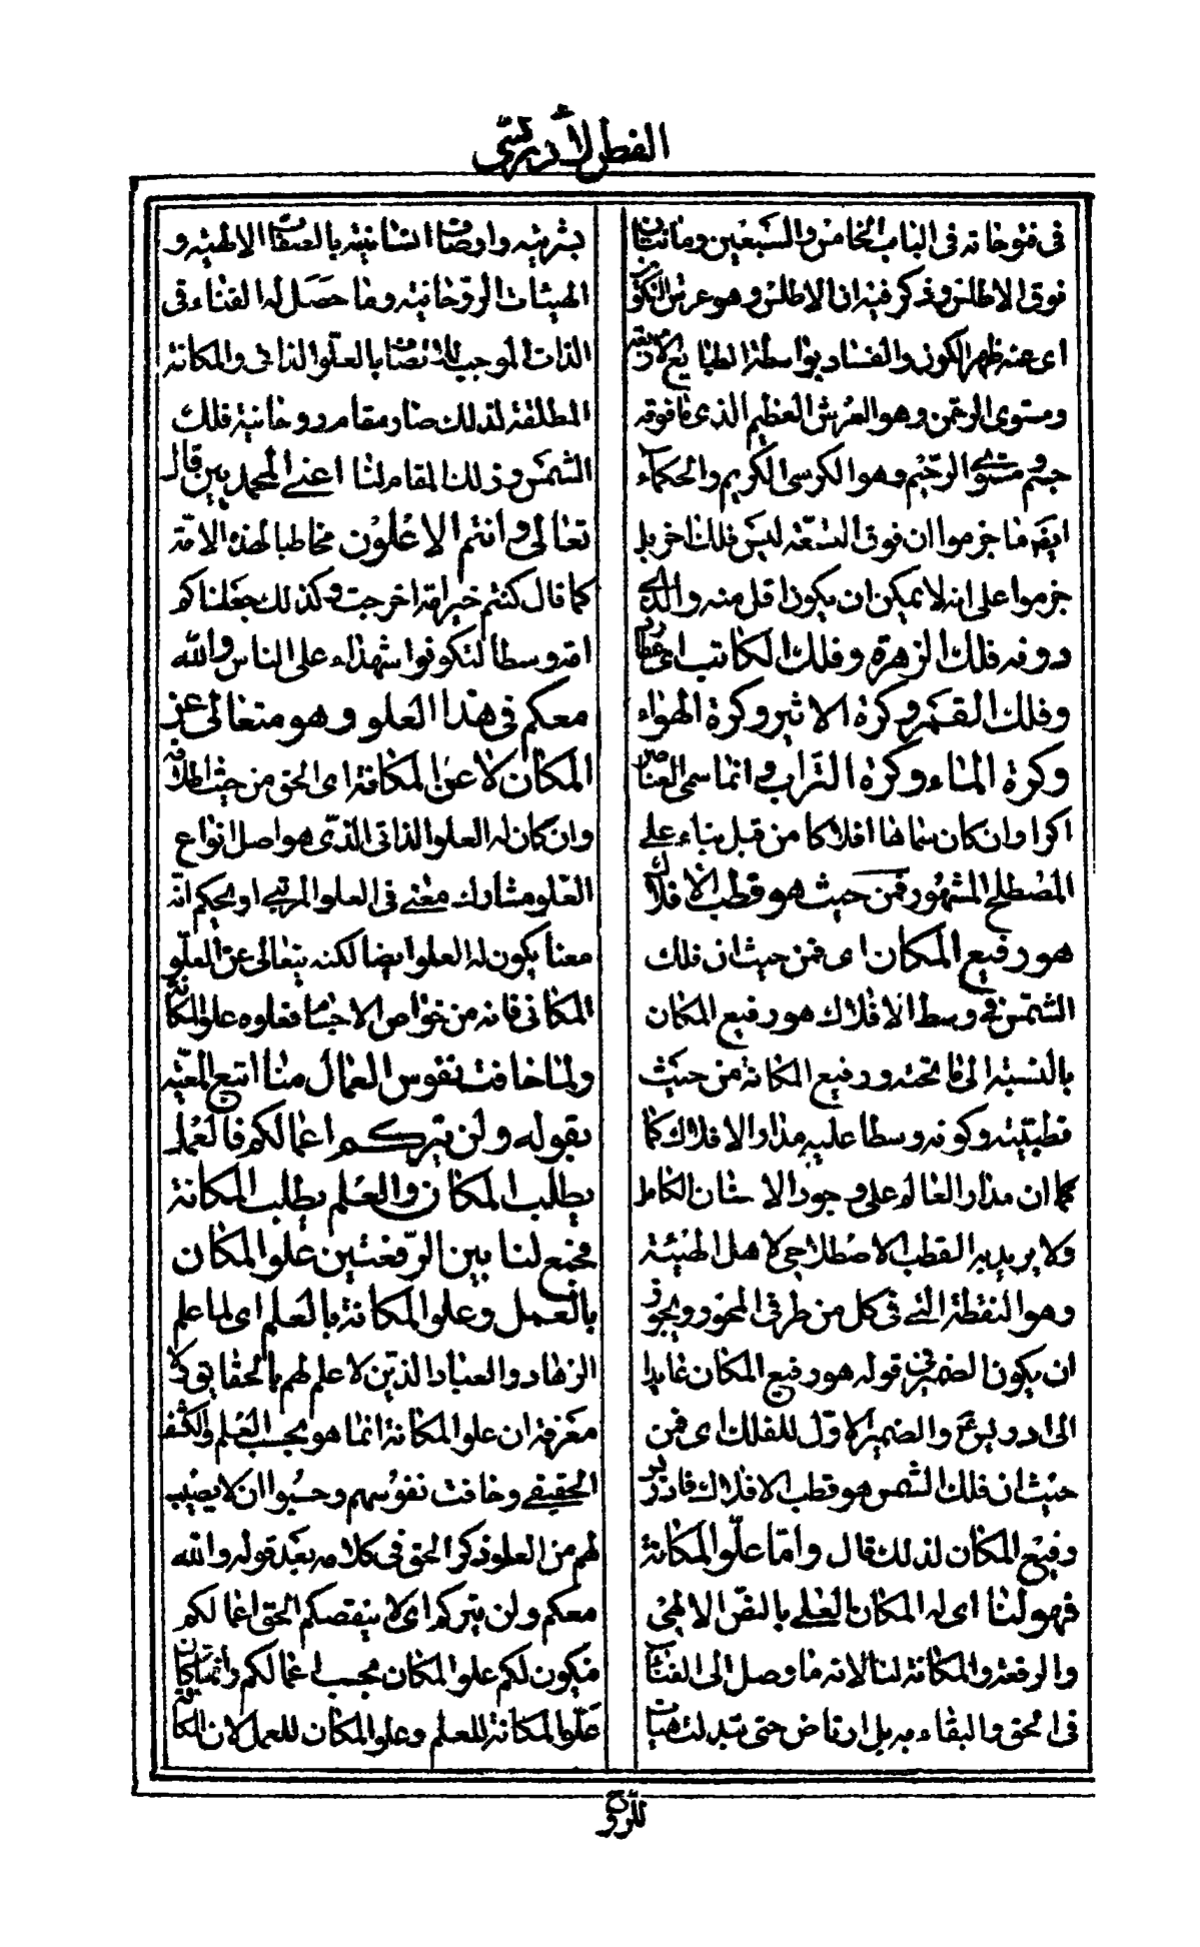 الفصّ الأدريسّى
فى فتوحاته فى الباب الخامس والسبعين ومأتين
فوق الاطلس وذكر فيه ان الاطلس وهو عرش التكوين
اى عنه ظهر الكون والفساد بواسطة الطبايع الاربعة
ومستوى الرحمن وهو العرش العظيم الذى ما فوقه
جسم ومستوى الرحيم وهو الكرسى الكريم والحكماء
ايضا ما جزموا ان فوق التسعة ليس فلك اخر بل
جزموا على انه لا يمكن ان يكون اقل منه والذى
دونه فلك الزهرة وفلك الكاتب اى عطارد
وفلك القمر وكرة الاثير وكرة الهواء
وكرة الماء وكرة التراب وانما سمى العناصر
اكرا وان كان سماها افلاكا من قبل بناء على
المصطلح المشهور فمن حيث هو قطب الافلاك
هو رفيع المكان اى فمن حيث ان فلك
الشمس فى وسط الافلاك هو رفيع المكان
بالنسبة الى ما تحته ورفيع المكانة من حيث
قطبيته وكونه وسطا عليه مدار الافلاك كما
كما ان مدار العالم على وجود الانسان الكامل
ولا يريد به القطب الاصطلاحى لاهل الهيئة
وهو النقطة التى فى كل من طرفى المحور ويجوز
ان يكون الضمير فى قوله هو رفيع المكان عايدا
الى ادريس ع والضمير الاول للفلك اى فمن
حيث ان فلك الشمس هو قطب الافلاك فادريس
رفيع المكان لذلك قال وامّا علوّ المكانة
فهو لنا اى له المكان العلى بالنص الالهى
والرفعة والمكانة لنا لانه ما وصل الى الفناء
فى الحق والبقاء به بل ارتاض حتى تبدلت هيات
بشريته واوصاف انسانيته بالصفات الالهية و
الهيئات الروحانية وما حصل له الفناء فى
الذات الموجب للاتصاف بالعلو الذاتى والمكانة
المطلقة لذلك صار مقام روحانية فلك
الشمس وذلك المقام لنا اعنى المحمديين قال
تعالى وانتم الاعلون مخاطبا لهذه الامّة
كما قال كنتم خير امة اخرجت وكذلك جعلناكم
امة وسطا لتكونوا شهداء على الناس والله
معكم فى هذا العلو وهو متعالى عن
المكان لا عن المكانة اى الحق من حيث اطلاقه
وان كان له العلو الذاتى الذى هو اصل انواع
العلو مشارك معنى فى العلو المرتبى او بحكم انه
معنا يكون له العلو ايضا لكنه يتعالى عن العلو
المكانى فانه من خواص الاجسام فعلوه علو المكانة
ولما خافت نفوس العمال منا اتبع المعيّة
بقوله ولن يتركم اعمالكم فالعمل
يطلب المكان والعلم يطلب المكانة
فجمع لنا بين الرفعتين علو المكان
بالعمل وعلو المكانة بالعلم اى لما علم
الزهاد والعباد الذين لا علم لهم بالحقايق ولا
معرفة ان علو المكانة انما هو بحسب العلم والكشف
الحقيقى وخافت نفوسهم وحسبوا ان لا نصيب
لهم من العلو ذكر الحق فى كلامه بعد قوله والله
معكم ولن يتركم اى لا ينقصكم الحق اعمالكم
فيكون لكم علو المكان بحسب اعمالكم وانما كان
علو المكانة للعلم وعلو المكان للعمل لان المكانة
للروح